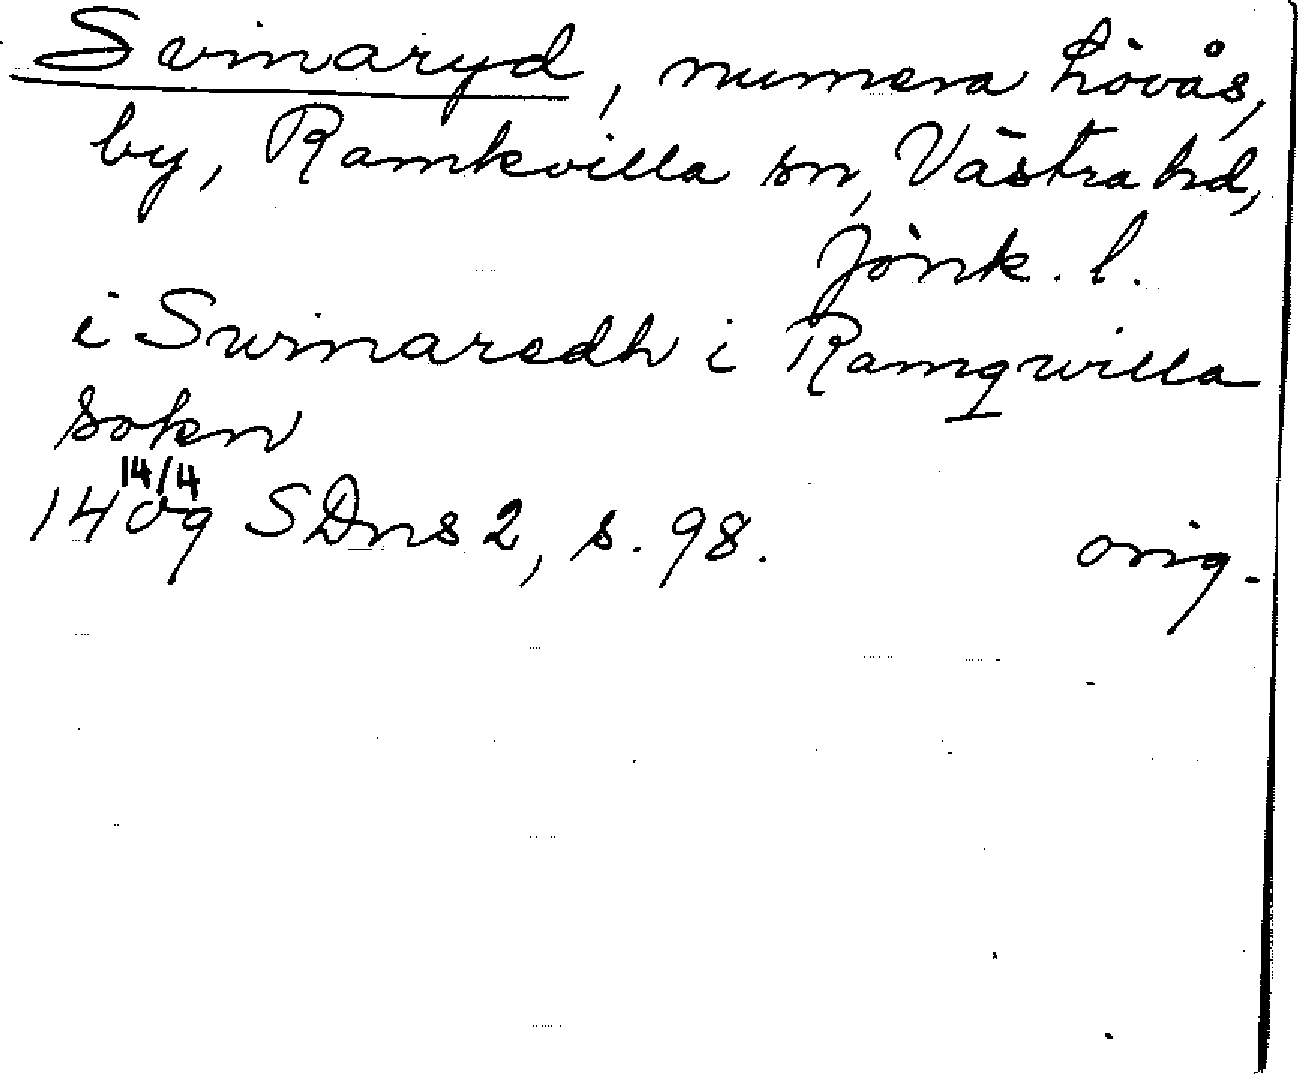 Svinaryd, numera Lövås,
by, Ramkvilla sn, Västra hd,
Jönk. l.
i Swinaredh i Ramqwilla
sokn
14/4
1409 SDns 2, s. 98. orig.